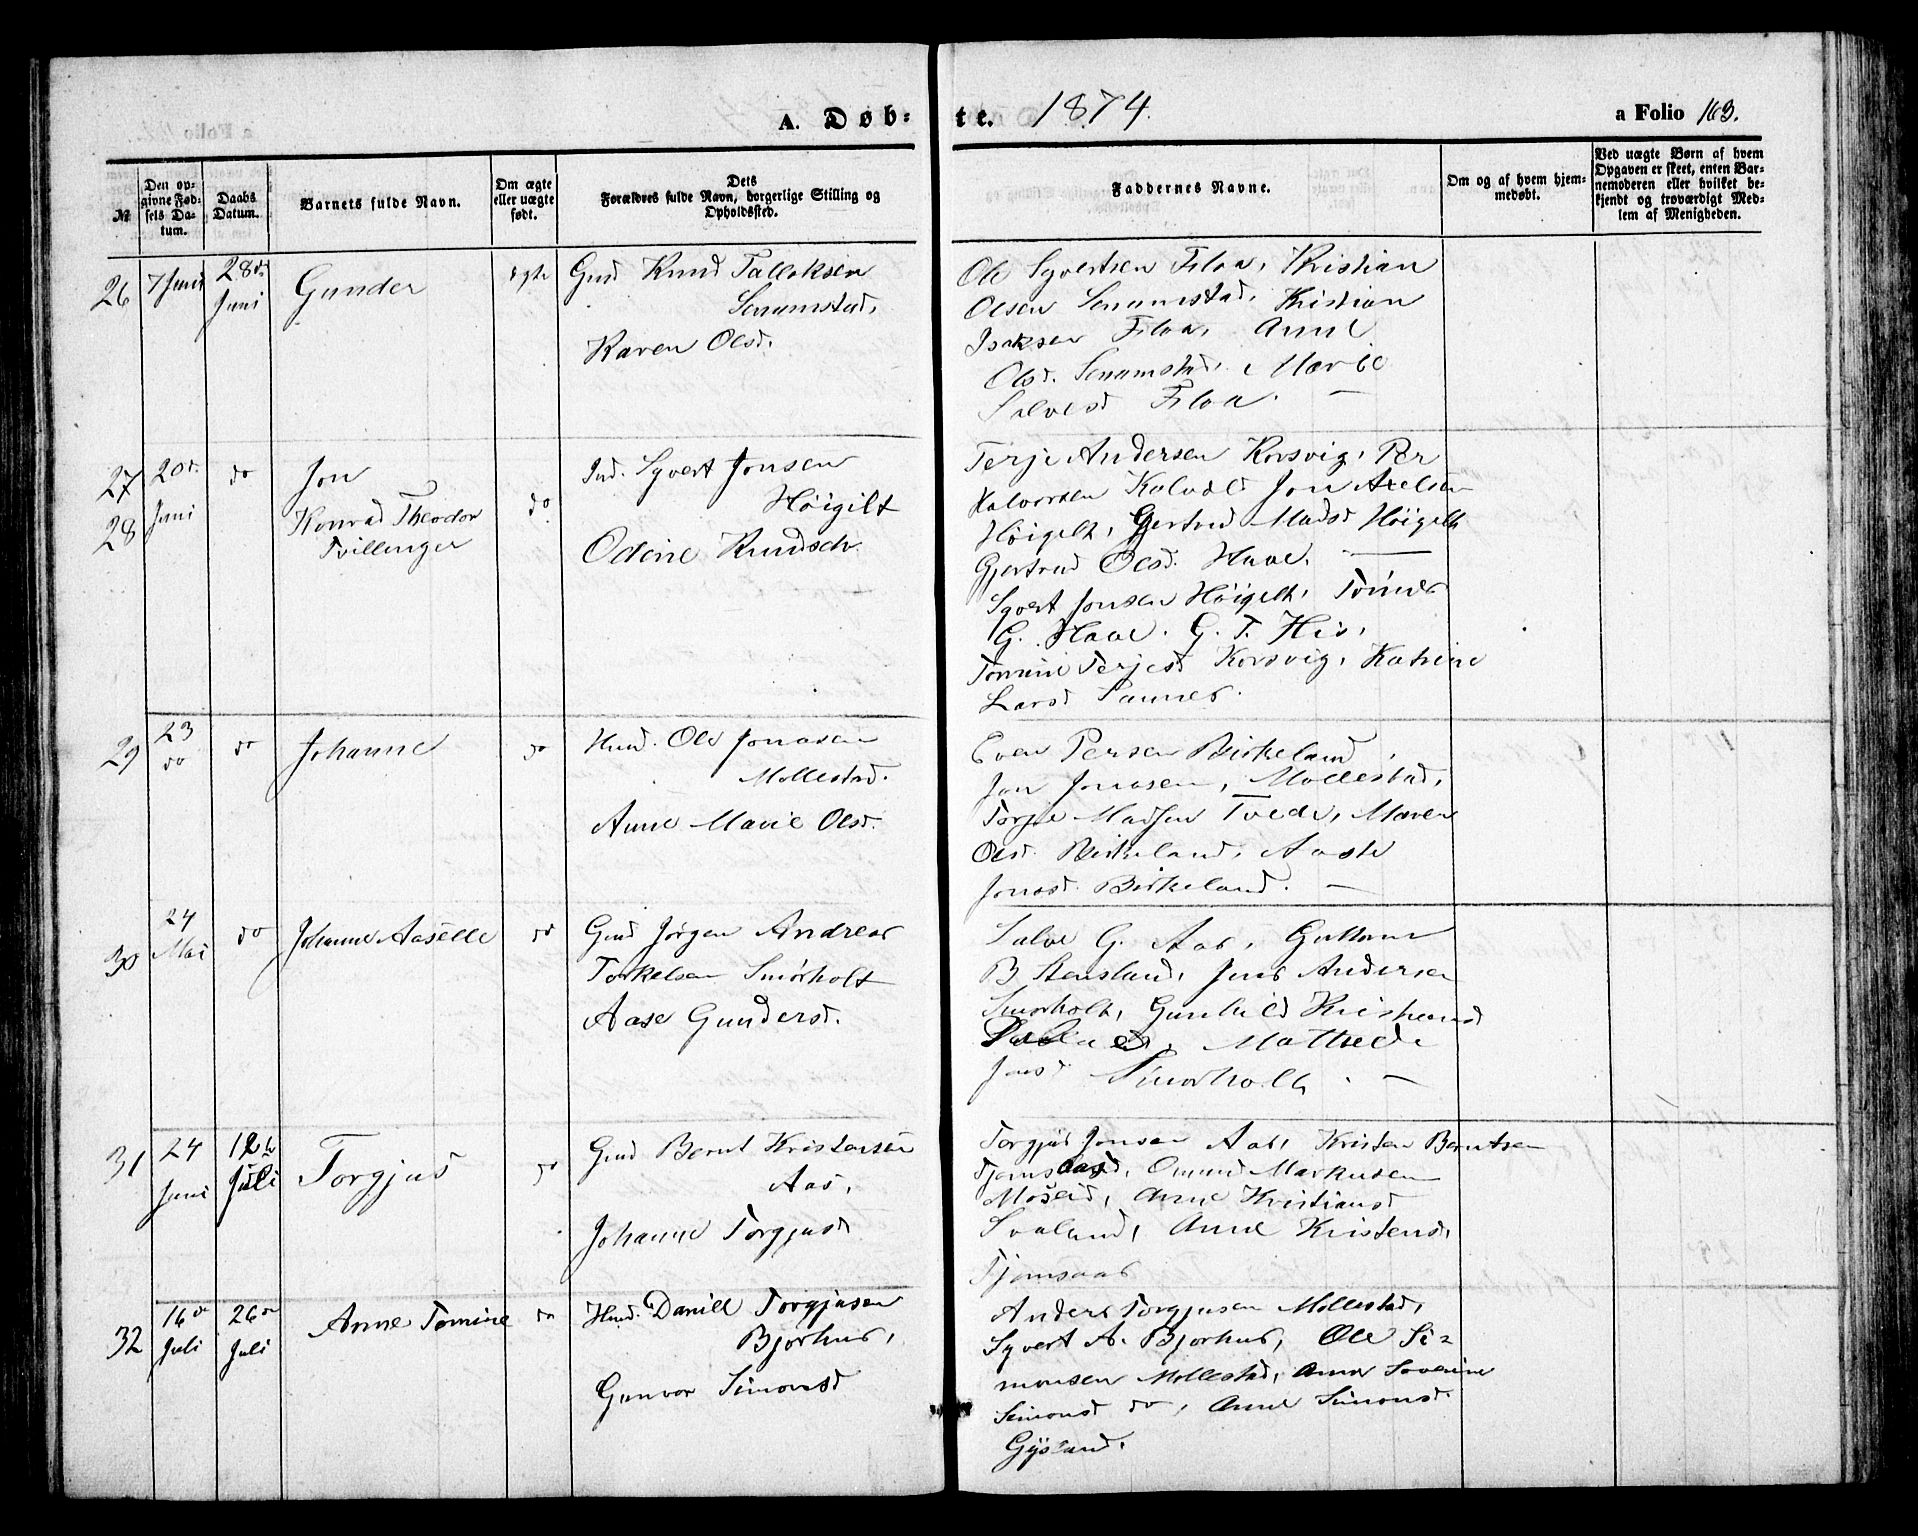 A. Døb-te. 1874. a Folio 163.
№
Den op-
givne Fød-
sels Da-
tum.
Daabs
Datum.
Barnets fulde Navn.
Om ægte
eller uægte
født.
Dets
Forældres fulde Navn, borgerlige Stilling og
Opholdssted.
Faddernes Navne.
Om og af hvem hjem-
medøbt.
Ved uægte Børn af hvem
Opgaven er skeet, enten Bar-
nemoderen eller hvilket be-
kjendt og troværdigt Med-
lem af Menigheden.
26 7 Juni 28de Juni Gunder ægte
Gmd Knud Tallaksen
Senumstad,
Karen Olsd.
Ole Syvertsen Floa, Kristian
Olsen Senumstad, Kristian
Isaksen Floa, Anne
Olsd. Senumstad, Marie
Salvesd Floa. —
27 20d. Juni do Jon
28 Konrad Theodor
Tvillinger
do
Ind. Syvert Jonsen
Höigilt
Odine Knudsdr.
Terje Andersen Korsvig, Per
Halvorsen Jon Axelsen
Höigelt, Gertrud Madsd Höigelt
Gjertrud Olsd. Haae. —
Syvert Jonsen Höigelt,
G. Haae. G. T. His,
Tomine Terjesd Korsvig, Katrine
Larsd
29 23 do do Johanne do
Hmd. Ole Jonasen
Mollestad.
Anne Marie Olsd.
Even Persen Birkeland,
Jon Jonasen, Mollestad,
Torje Madsen Tvede, Maren
Olsd. Birkeland, Aaste
Jonsd. Birkeland. —
30 24 Mai do Johanne Aaselle do
Gmd Jörgen Andreas
Torkelsen Smörholt
Aase Gundersd.
Salve G. Aas, Guttorm
B Stensland, Jens Andersen
Smörholt, Gunhild Kristensd
Mathede
Jensd Smörholt. —
31 24 Juni 12te Juli Torgjus do
Gmd Bernt Kristensen
Aas,
Johanne Torgjusd
Torgjus Jonsen Aas, Kristen Berntsen
Tjomsaas, Omund Markusen
Moseid, Anne Kristiansd
Svaland, Anne Kristensd,
Tjomsaas
32 16de Juli 26de Juli Anne Tomine do
Hmd. Daniel Torgjusen
Bjorhus,
Gunvor Simonsd
Anders Torgjusen Mollestad,
Syvert A. Bjorhus, Ole Si-
monsen Mollestad, Anne Severine
Simonsd do, Anne Simonsd
Gysland.